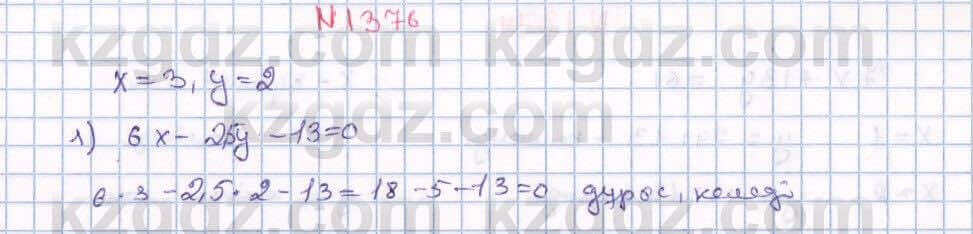 N1376
kzgdz.com kzgdz.com
x=3, y=2
1) 6x - 2,5y - 13=0
6·3 - 2,5·2 - 13 = 18 - 5 - 13 = 0 дұрыс, келеді
kzgdz.com kzgdz.com